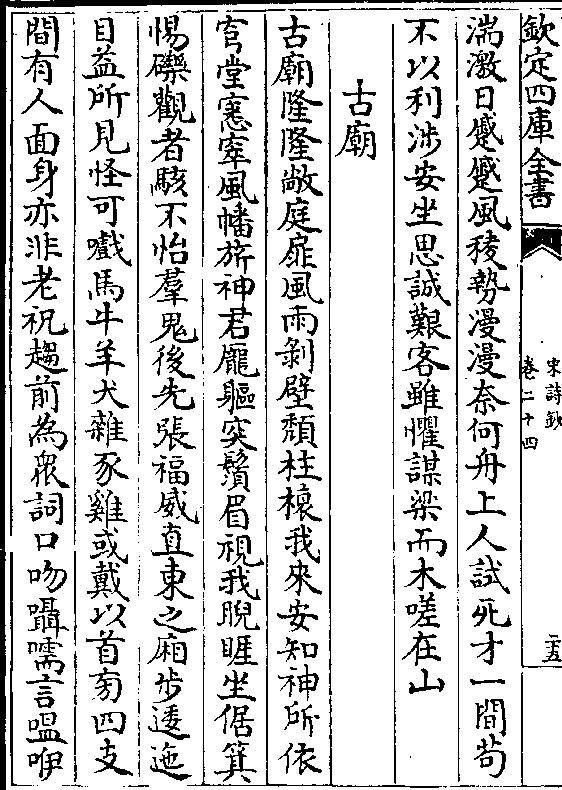 欽定四庫全書
宋詩鈔
卷二十四
二五
湍激日蹙蹙風稜勢漫漫奈何舟上人試死才一間茍
不以利涉安坐思誠艱客雖懼謀梁而木嗟在山
古廟
古廟隆隆敞庭扉風雨剝壁頽柱欀我來安知神所依
穹堂窻窂風幡旂神君厖軀突鬚眉視我睨睚坐倨箕
惕礫觀者駭不怡羣鬼後先張福威直東之廂步逶迤
目益所見怪可嚱馬牛羊犬雜豕雞或戴以首旁四支
間有人面身亦非老祝趨前為衆詞口吻躡嚅言嗢咿